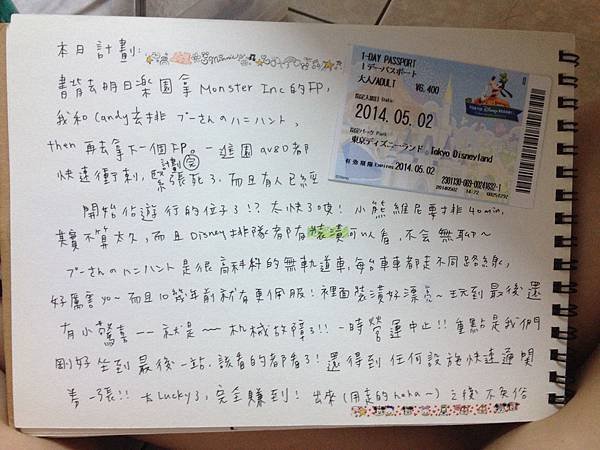 本日計劃:
書背去明日樂園拿 Monster Inc 的 FP,
我和 Candy 去排 プーさんのハニハント,
then 再去拿下一個 FP。一進園 everybody 都
快速衝刺, 緊張死了, 而且有人已經
開始佔遊行的位子了!? 太快了唄! 小熊維尼要排 40 min,
其實不算太久, 而且 Disney 排隊都有裝潢可以看, 不會無聊~
プーさんのハニハント 是很高科技的無軌道車, 每台車車都走不同路線,
好厲害 yo~ 而且10幾年前就有車佩服! 裡面裝潢好漂亮~ 玩到最後還
有小驚喜 -- 就是~~ 机械故障了!! 一時營運中止!! 重點是我們
剛好坐到最後一站, 該看的都看了! 還得到任何設施快速通關
券一張!! 太Lucky了, 完全賺到! 出來 (用走的 haha~) 之後不免俗
1-DAY PASSPORT
1デーパスポート
大人/ADULT ¥6,400
2014.05.02
東京ディズニーランド Tokyo Disneyland
有効期限 Expires 2014.05.02